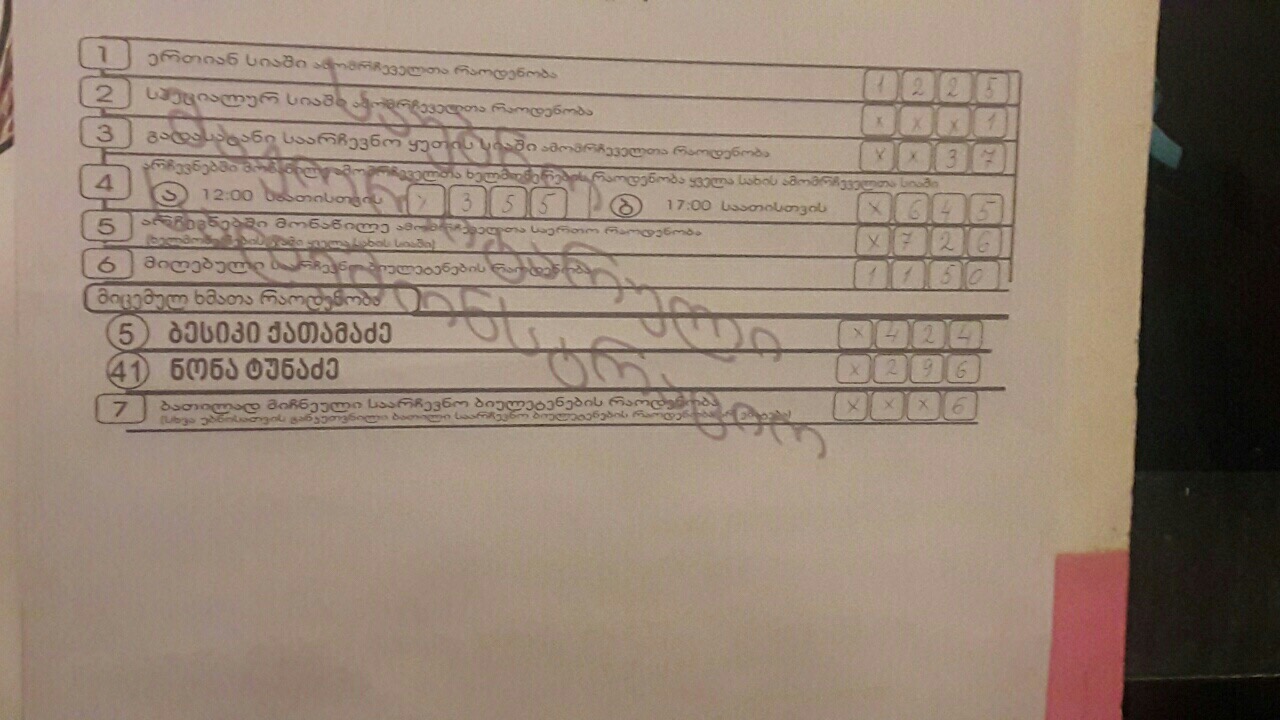 1 ერთიან სიაში ამომრჩეველთა რაოდენობა 1 2 2 5
2 სპეციალურ სიაში ამომრჩეველთა რაოდენობა x x x 1
3 გადასატანი საარჩევნო ყუთის სიაში ამომრჩეველთა რაოდენობა x x 3 7
არჩევნებში მონაწილე ამომრჩეველთა ხელმოწერების რაოდენობა ყველა სახის ამომრჩეველთა სიაში
4 ა 12:00 საათისთვის x 3 5 5 ბ 17:00 საათისთვის x 6 4 5
5 არჩევნებში მონაწილე ამომრჩეველთა საერთო რაოდენობა x 7 2 6
6 მიღებული საარჩევნო ბიულეტენების რაოდენობა 1 1 5 0
მიცემულ ხმათა რაოდენობა
5 ბესიკი ქათამაძე x 4 2 4
41 ნონა ტუნაძე x 2 9 6
7 ბათილად მიჩნეული საარჩევნო ბიულეტენების რაოდენობა x x x 6